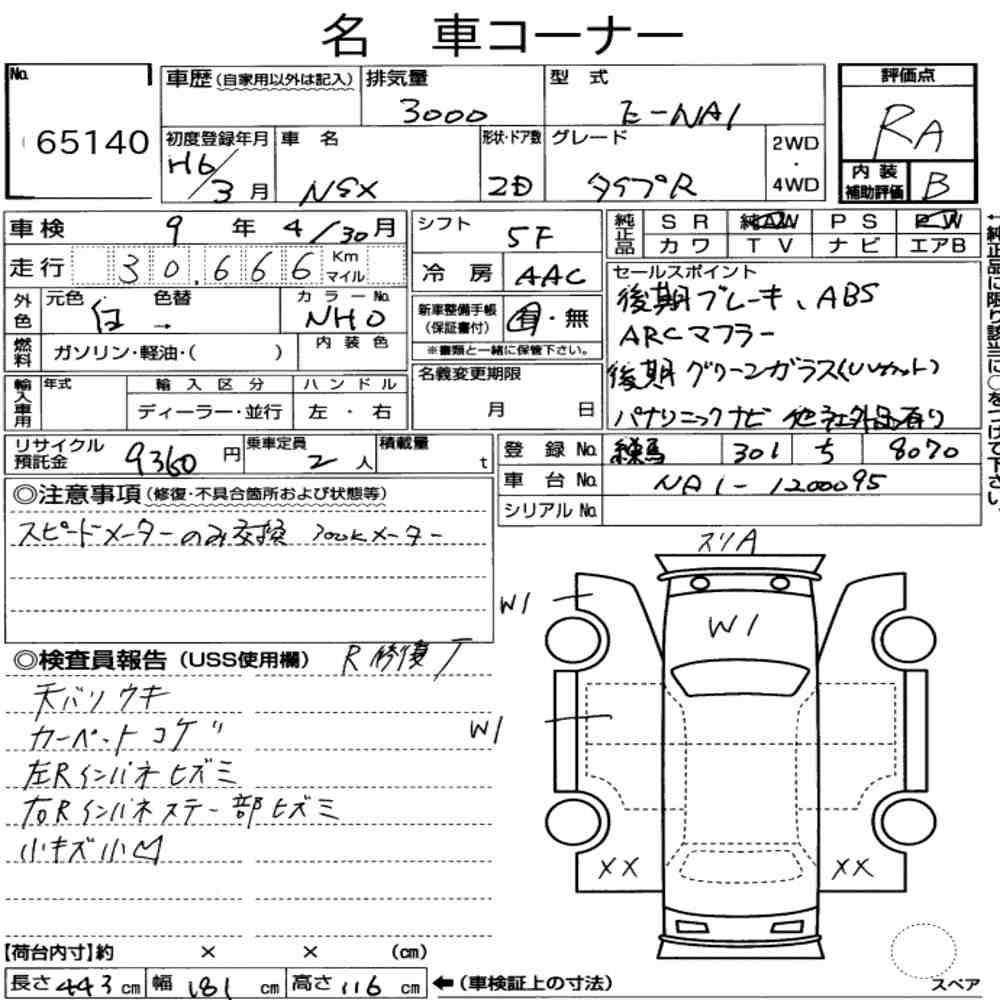 名 車コーナー
No. 65140
車歴(自家用以外は記入) 排気量 3000 型式 E-NA1
評価点 RA
初度登録年月 H6/3月 車名 NSX 形状・ドア数 2D グレード タイプR 2WD・4WD
内装補助評価 B
車検 9年 4/30月 シフト 5F 純正品 SR 純AW PS PW
カワ TV ナビ エアB
走行 30,666 Km マイル 冷房 AAC
セールスポイント
後期ブレーキ、ABS
ARCマフラー
後期グリーンガラス(UVカット)
パナソニックナビ 他社外品有り
←純正品に限り該当に○をつけて下さい。
外色 元色 白 → 色替 カラーNo. NH0
新車整備手帳(保証書付) 有・無
※書類と一緒に保管下さい。
燃料 ガソリン・軽油・( ) 内装色
名義変更期限 月 日
輸入車用 年式 輸入区分 ハンドル
ディーラー・並行 左・右
リサイクル預託金 9360円 乗車定員 2人 積載量 t
登録No. 練馬 301 ち 8070
車台No. NA1-1200095
シリアルNo.
◎注意事項(修復・不具合箇所および状態等)
スピードメーターのみ交換 300kメーター
◎検査員報告(USS使用欄) R修復
天バリウキ
カーペットコゲ
左Rインパネヒズミ
右Rインパネステー部ヒズミ
小キズ小凹
スリA
W1
W1
W1
XX XX
スペア
【荷台内寸】約 × × (cm)
長さ 443 cm 幅 181 cm 高さ 116 cm ←(車検証上の寸法)